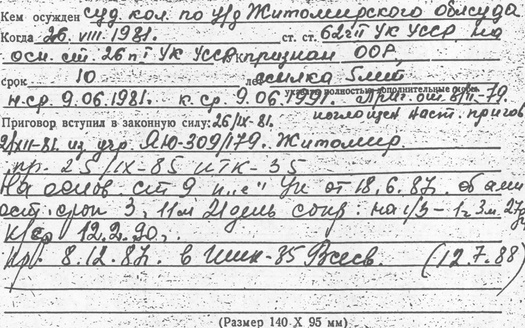 Кем осужден суд. кол. по у/д Житомирского облсуда
Когда 26.VIII.1981. ст. ст. 62 ч II УК УССР на
осн. ст. 26 п 1 УК УССР признан ООР,
срок 10 лет ссылка 5 лет
указать полностью дополнительные
н.ср. 9.06.1981. к.ср. 9.06.1991. Приг. от 79.
Приговор вступил в законную силу: 26/IX-81. поглощен наст. пригов
/XII-81. из учр. ЯЮ-309/179. Житомир
пр. 25/IX-85 ИТК-35
На основ. ст 9 п. „е" Ук от 18.6.87. об амн
ост. срок 3, 11м 21 день сокр. на 1/3 - 1г 3м 27
к/ср 12.2.90.
пр. 8.12.87. в -35 Всесв. (12.7.88)
(Размер 140 X 95 мм)